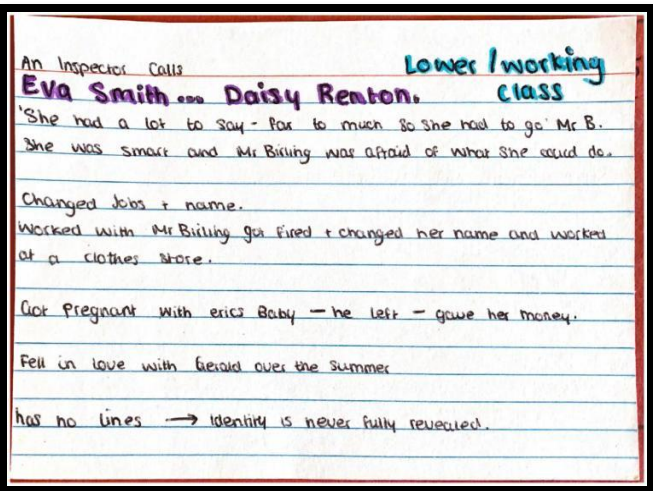 An Inspector Calls
Lower / working class
Eva Smith ... Daisy Renton.
'She had a lot to say - far to much so she had to go' Mr B.
She was smart and Mr Birling was afraid of what she could do.
Changed Jobs + name.
Worked with Mr Birling got fired + changed her name and worked
at a clothes store.
Got Pregnant with erics Baby — he left — gave her money.
Fell in love with Gerald over the summer
has no lines → identity is never fully revealed.